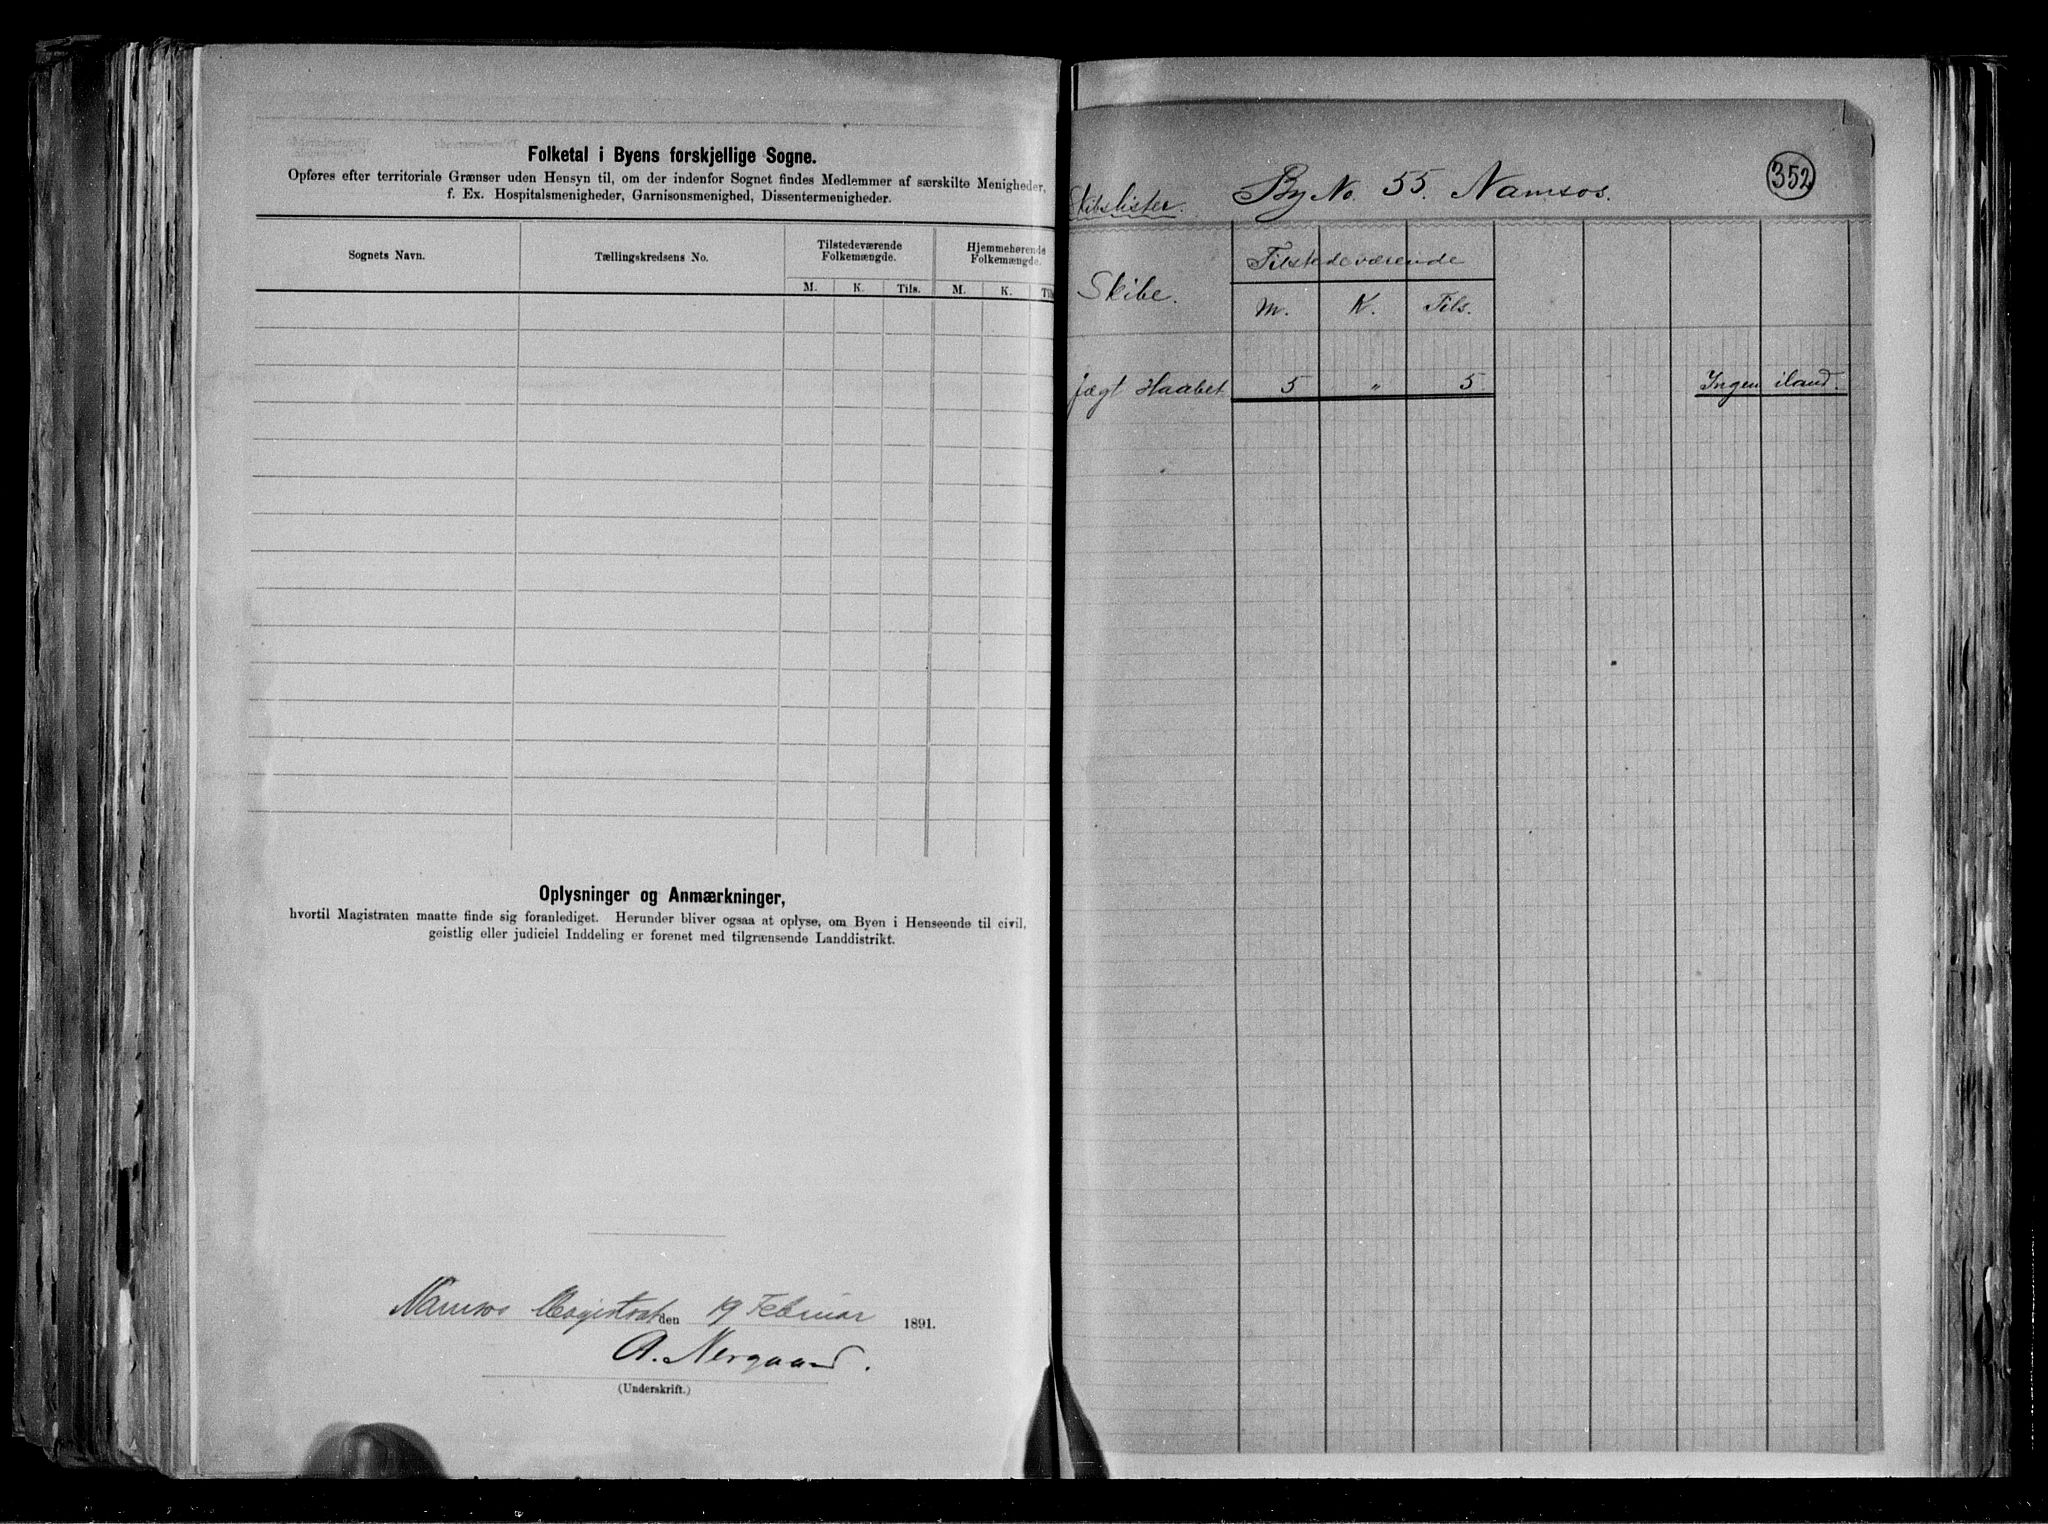 Folketal i Byens forskjellige Sogne.
Opføres efter territoriale Grænser uden Hensyn til, om der indenfor Sognet findes Medlemmer af særskilte Menigheder,
f. Ex. Hospitalsmenigheder, Garnisonsmenighed, Dissentermenigheder.
Sognets Navn.
Tællingskredsens No.
Tilstedeværende
Folkemængde.
Hjemmehørende
Folkemængde.
M. K. Tils. M. K. Tils
Oplysninger og Anmærkninger,
hvortil Magistraten maatte finde sig foranlediget. Herunder bliver ogsaa at oplyse, om Byen i Henseende til civil,
geistlig eller judiciel Inddeling er forenet med tilgrænsende Landdistrikt.
Namsos Magistrat, den 19 Februar 1891.
A. Nergaard.
(Underskrift.)
352
Skibslister. By No. 55. Namsos.
Skibe.
Tilstedeværende
M. K. Tils.
Jægt Haabet 5 " 5 Ingen iland.